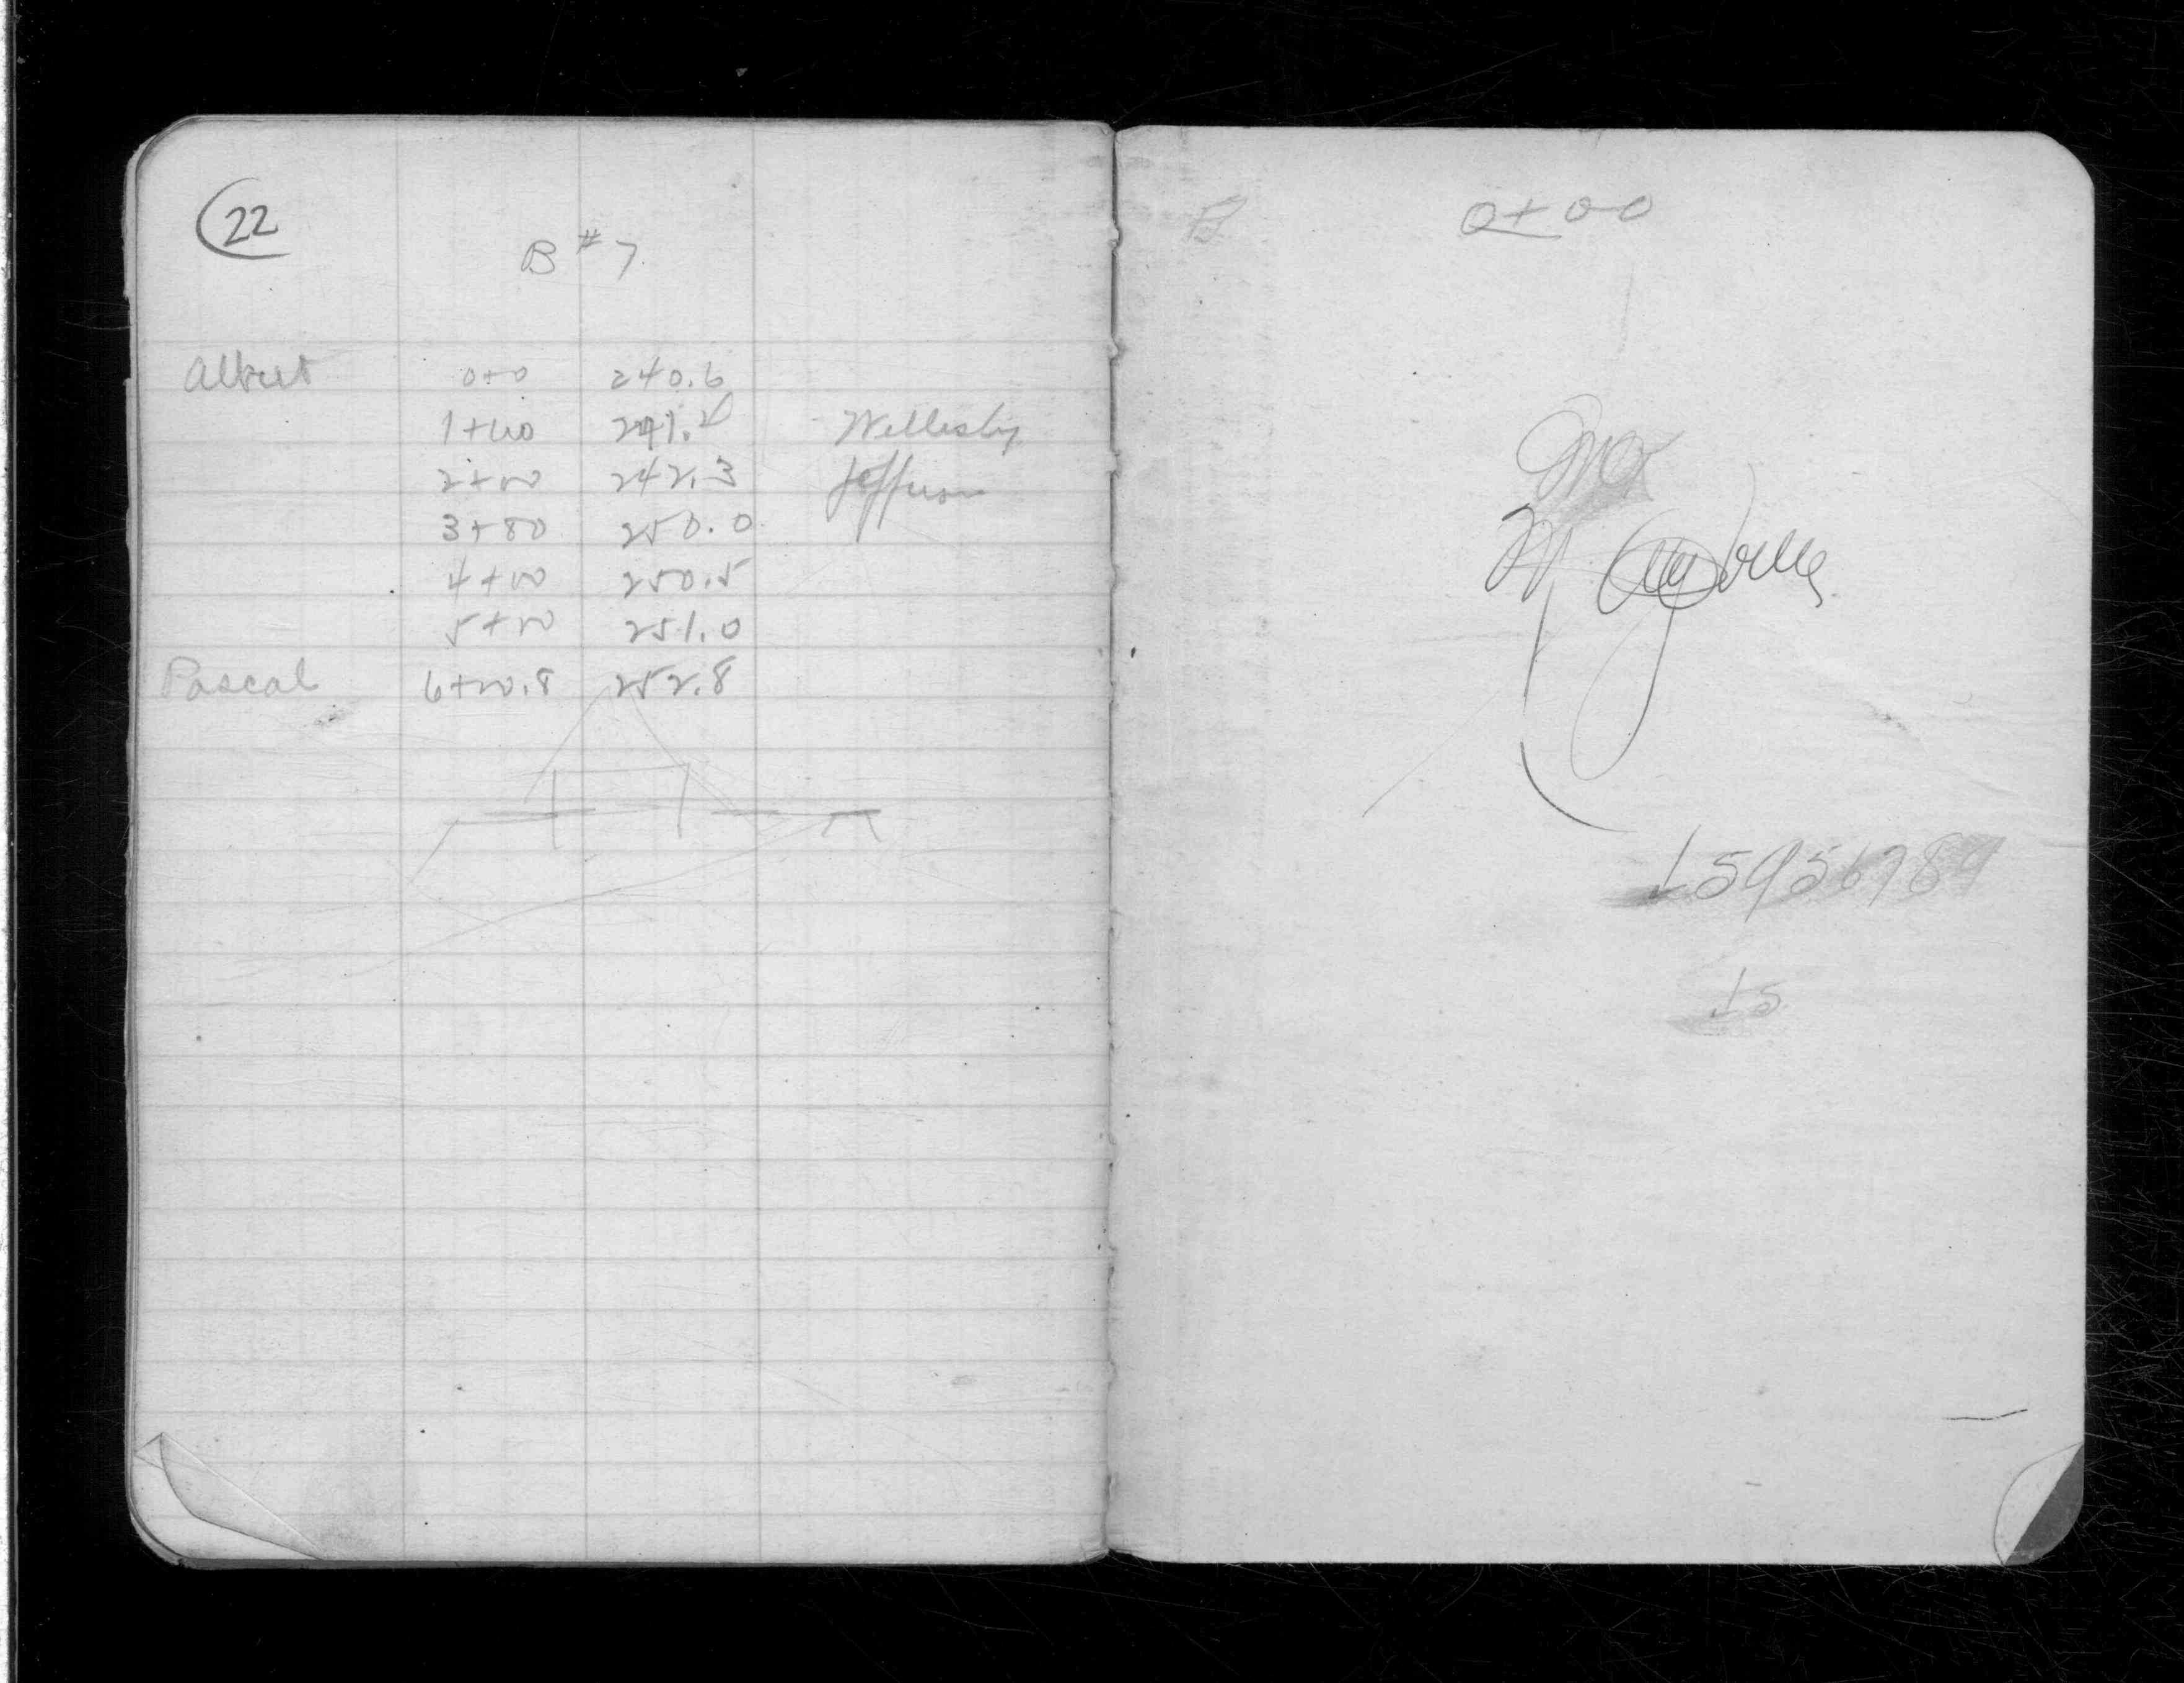 22
B #7
Albert 0+0 240.6
1+00 241.2 Wellesley
2+00 242.3 Jefferson
3+80 250.0
4+00 250.5
5+00 251.0
Pascal 6+20.8 252.8
B 0+00
15956789
15